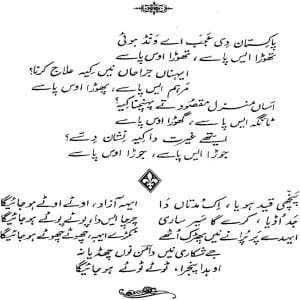 پاکستان دی عجب اے ونڈ ہوئی
تھوڑا ایس پاسے، تھوڑا اوس پاسے
ایہناں جراحاں نیں کیہ علاج کرنا؟
مرہم ایس پاسے، پھوڑا اوس پاسے
اساں منزل مقصود تے پہنچنا کیہ؟
ٹانگہ ایس پاسے، گھوڑا اوس پاسے
ایتھے غیرت دا کیہ نشان دسے؟
جوڑا ایس پاسے، جوڑا اوس پاسے
پنچھی قید ہویا، اک مدتاں دا ایہہ آزاد، اوتے اوتے ہو جائیگا
جد اڈیا، کرے گا سیر ساری
ایہدے سے پر پرانے نیں پھڑک اٹھے
جے شکاری نیں دامنوں چھڈیا نہ
اوہدا پنجرا، ٹوٹے ٹوٹے ہو جائیگا